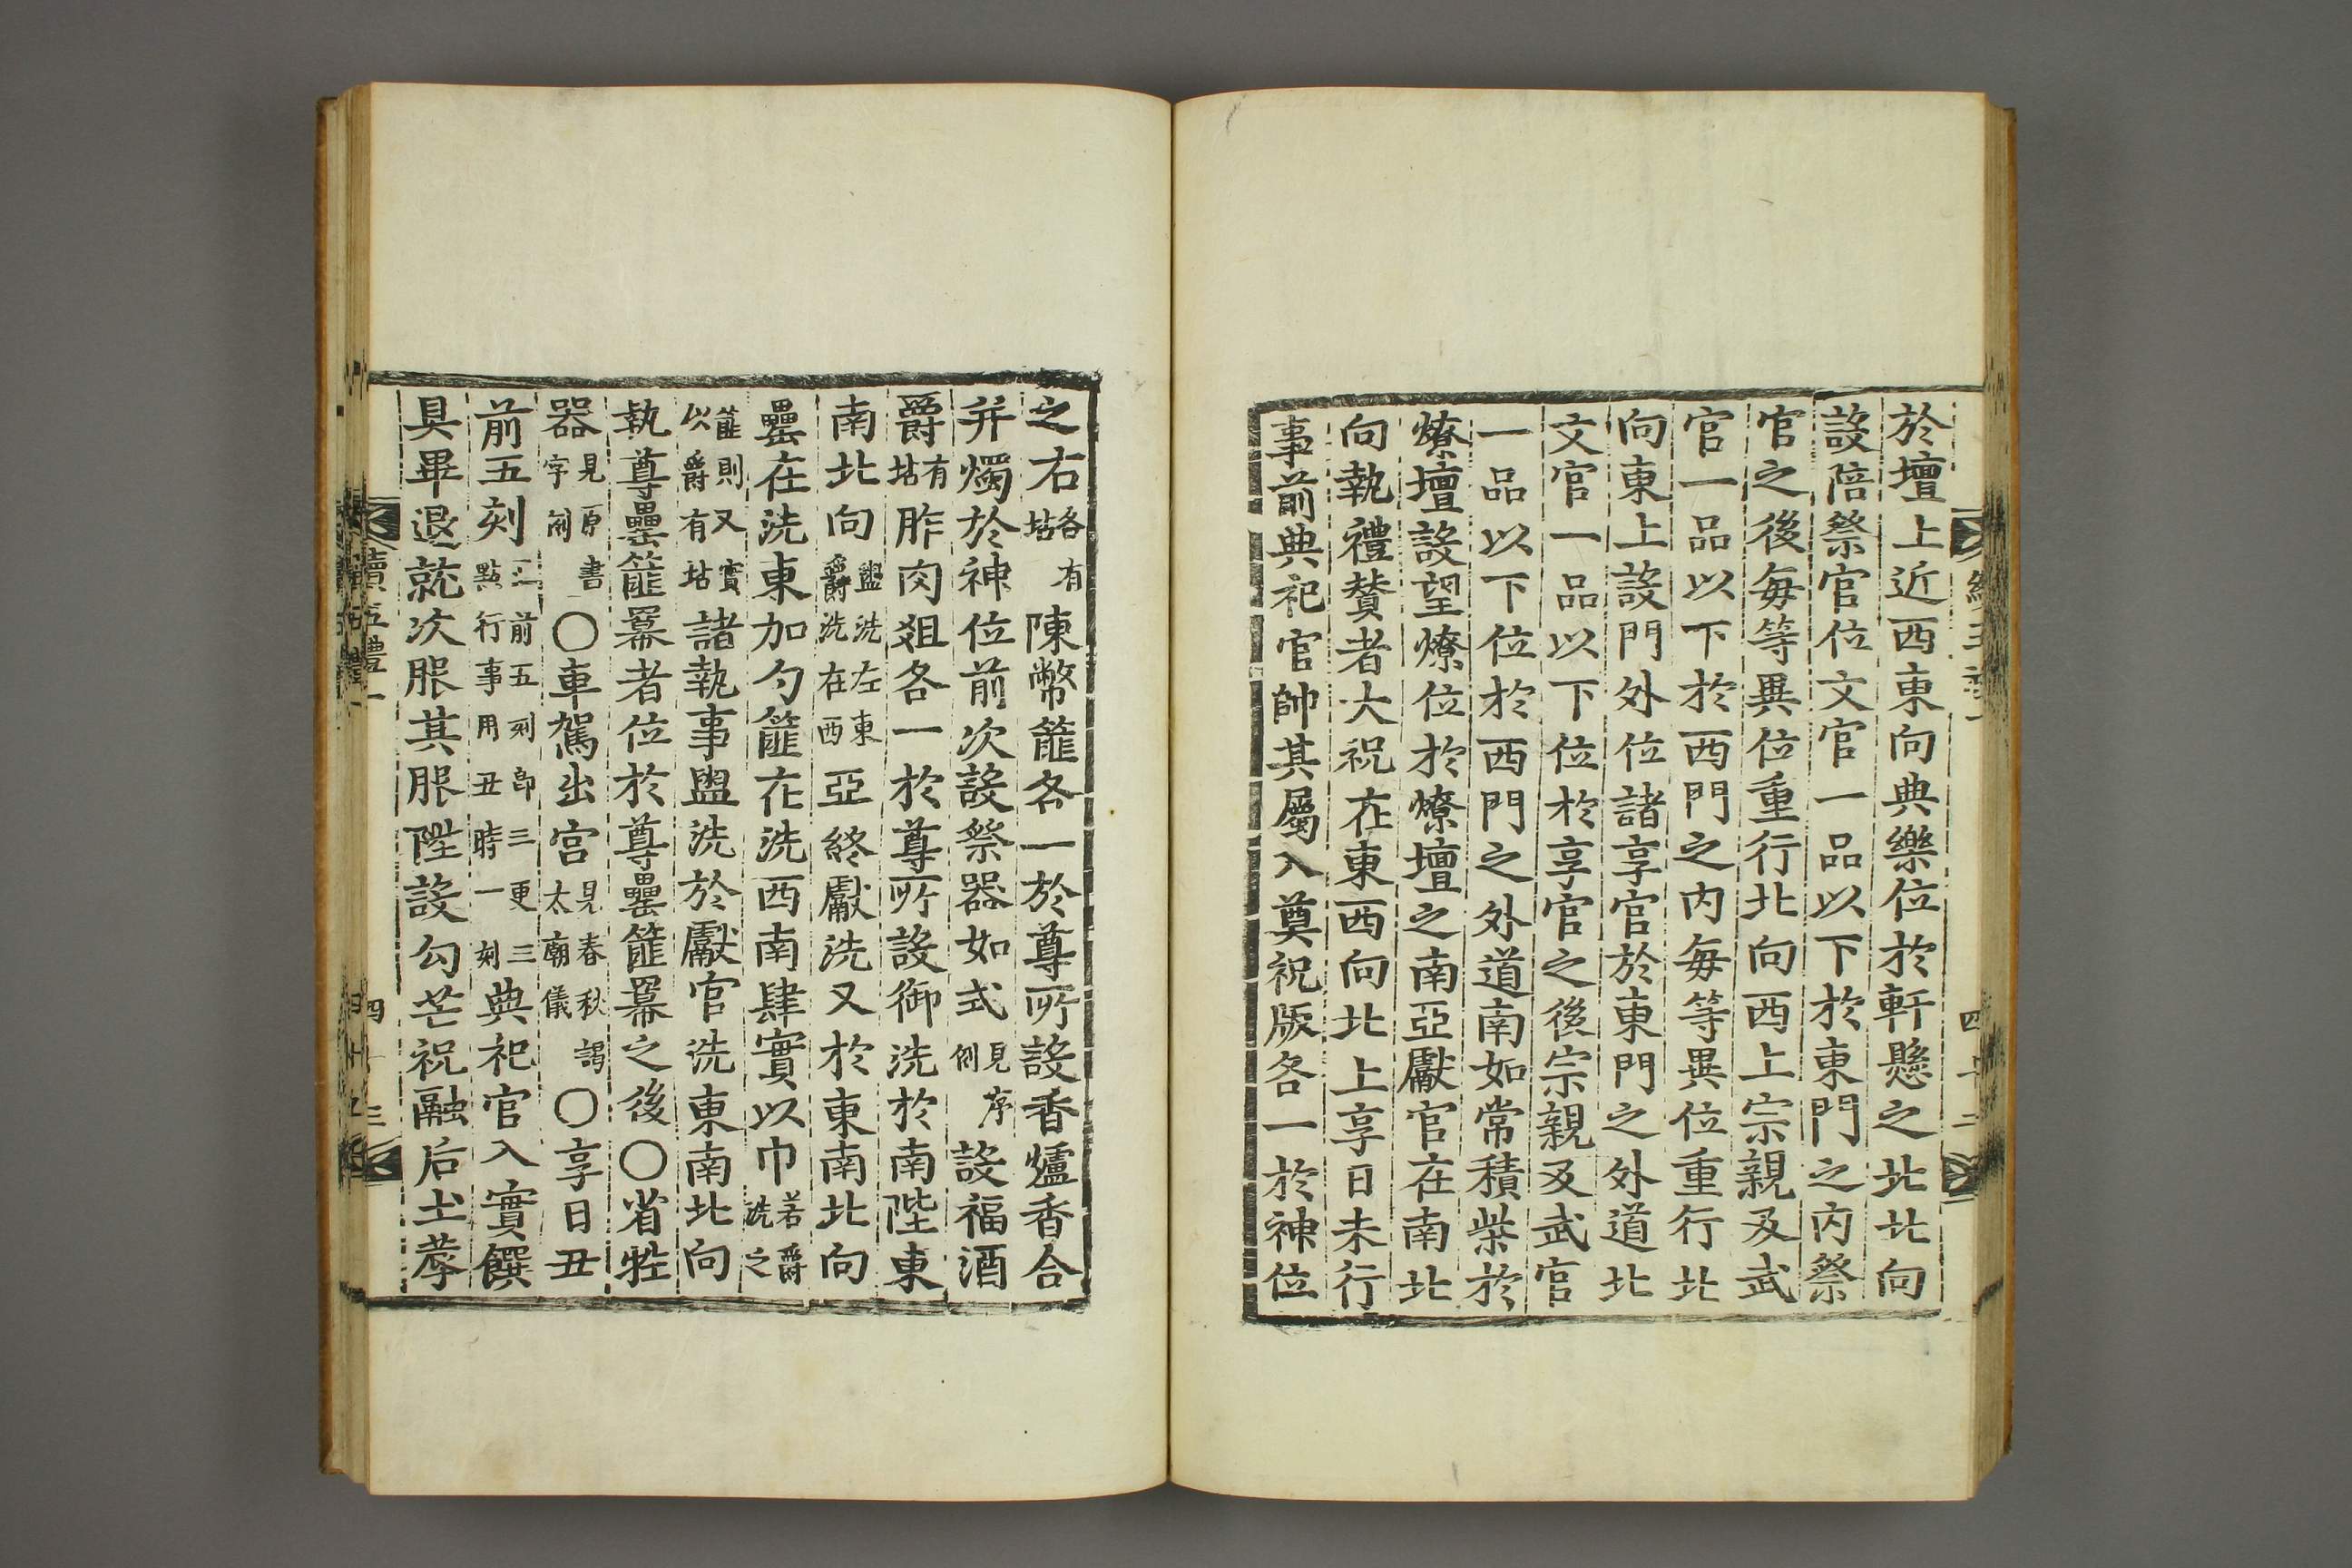 於壇上近西東向典樂位於軒懸之北北向
設陪祭官位文官一品以下於東門之內祭
官之後每等異位重行北向西上宗親及武
官一品以下於西門之內每等異位重行北
向東上設門外位諸享官於東門之外道北
文官一品以下位於享官之後宗親及武官
一品以下位於西門之外道南如常積柴於
燎壇設望燎位於燎壇之南亞獻官在南北
向執禮贊者大祝在東西向北上享日未行
事前典祀官帥其屬入奠祝版各一於神位
之右各有坫陳幣篚各一於尊所設香爐香合
并燭於神位前次設祭器如式見序例設福酒
爵有坫胙肉俎各一於尊所設御洗於南陛東
南北向盥洗左東爵洗在西亞終獻洗又於東南北向
罍在洗東加勺篚在洗西南肆實以巾若爵洗之
篚則又實以爵有坫諸執事盥洗於獻官洗東南北向
執尊罍篚羃者位於尊罍篚羃之後○省牲
器見原書字劄○車駕出宮見春秋謁太廟儀○享日丑
前五刻三前五刻即三更三點行事用丑時一刻典祀官入實饌
具畢退就次服其服陞設勾芒祝融后土蓐
續五禮一
四十三